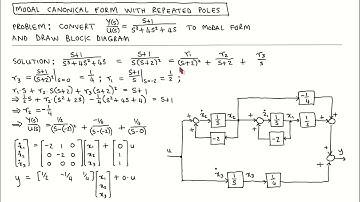 MODAL CANONICAL FORM WITH REPEATED POLES
PROBLEM: CONVERT Y(s)/U(s) = S+1/S³+4S²+4S TO MODAL FORM
AND DRAW BLOCK DIAGRAM
SOLUTION: S+1/S³+4S²+4S = S+1/S(S+2)² = r₁/(S+2)² + r₂/S+2 + r₃/S
r₃ = S+1/(S+2)² |S=0 = 1/4 ; r₁ = S+1/S |S=-2 = 1/2 ;
r₁·S + r₂·S(S+2) + r₃(S+2)² = S+1
⇒ 1/2 S + r₂(S²+2S) + 1/4(S²+4S+4) = S+1
⇒ r₂ = -1/4
⇒ Y(s)/U(s) = 1/2/(S-(-2))² + -1/4/(S-(-2)) + 1/4/(S-0)
[ẋ₁ ẋ₂ ẋ₃] = [-2 1 0 0 -2 0 0 0 0][x₁ x₂ x₃] + [0 1 1] u
y = [1/2 -1/4 1/4][x₁ x₂ x₃] + 0·u
-1/4
u
ẋ₂ 1/S x₂ ẋ₁ 1/S x₁ 1/2
-2 -2
y
ẋ₃ 1/S x₃ 1/4